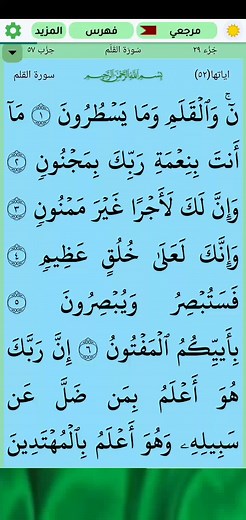 مرجعي فهرس المزيد
جزء ٢٩ سورة القلم حزب ٥٧
اياتها(٥٢) بِسْمِ اللَّهِ الرَّحْمَٰنِ الرَّحِيمِ سورة القلم
نٓۚ وَٱلْقَلَمِ وَمَا يَسْطُرُونَ ١ مَآ
أَنتَ بِنِعْمَةِ رَبِّكَ بِمَجْنُونٖ ٢
وَإِنَّ لَكَ لَأَجْرًا غَيْرَ مَمْنُونٖ ٣
وَإِنَّكَ لَعَلَىٰ خُلُقٍ عَظِيمٖ ٤
فَسَتُبْصِرُ وَيُبْصِرُونَ ٥
بِأَييِّكُمُ ٱلْمَفْتُونُ ٦ إِنَّ رَبَّكَ
هُوَ أَعْلَمُ بِمَن ضَلَّ عَن
سَبِيلِهِۦ وَهُوَ أَعْلَمُ بِٱلْمُهْتَدِينَ